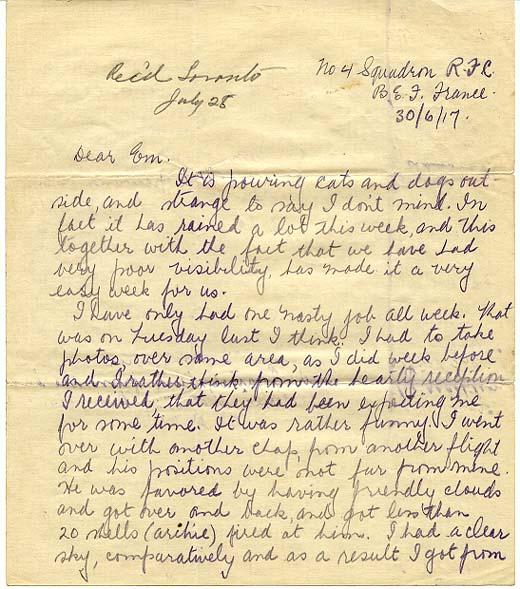 Rec'd Toronto
July 28
No 4 Squadron R.F.C.
B.E.F. France.
30/6/17.
Dear Em.
It is pouring cats and dogs out
side, and strange to say I don't mind. In
fact it has rained a lot this week, and this
together with the fact that we have had
very poor visibility, has made it a very
easy week for us.
I have only had one nasty job all week. That
was on Tuesday last I think. I had to take
photos, over same area, as I did week before
and I rather think from the hearty reception
I received, that they had been expecting me
for some time. It was rather funny. I went
over with another chap from another flight
and his positions were not far from mine.
He was favored by having friendly clouds
and got over and back, and got less than
20 shells (archie) fired at him. I had a clear
sky, comparatively and as a result I got from